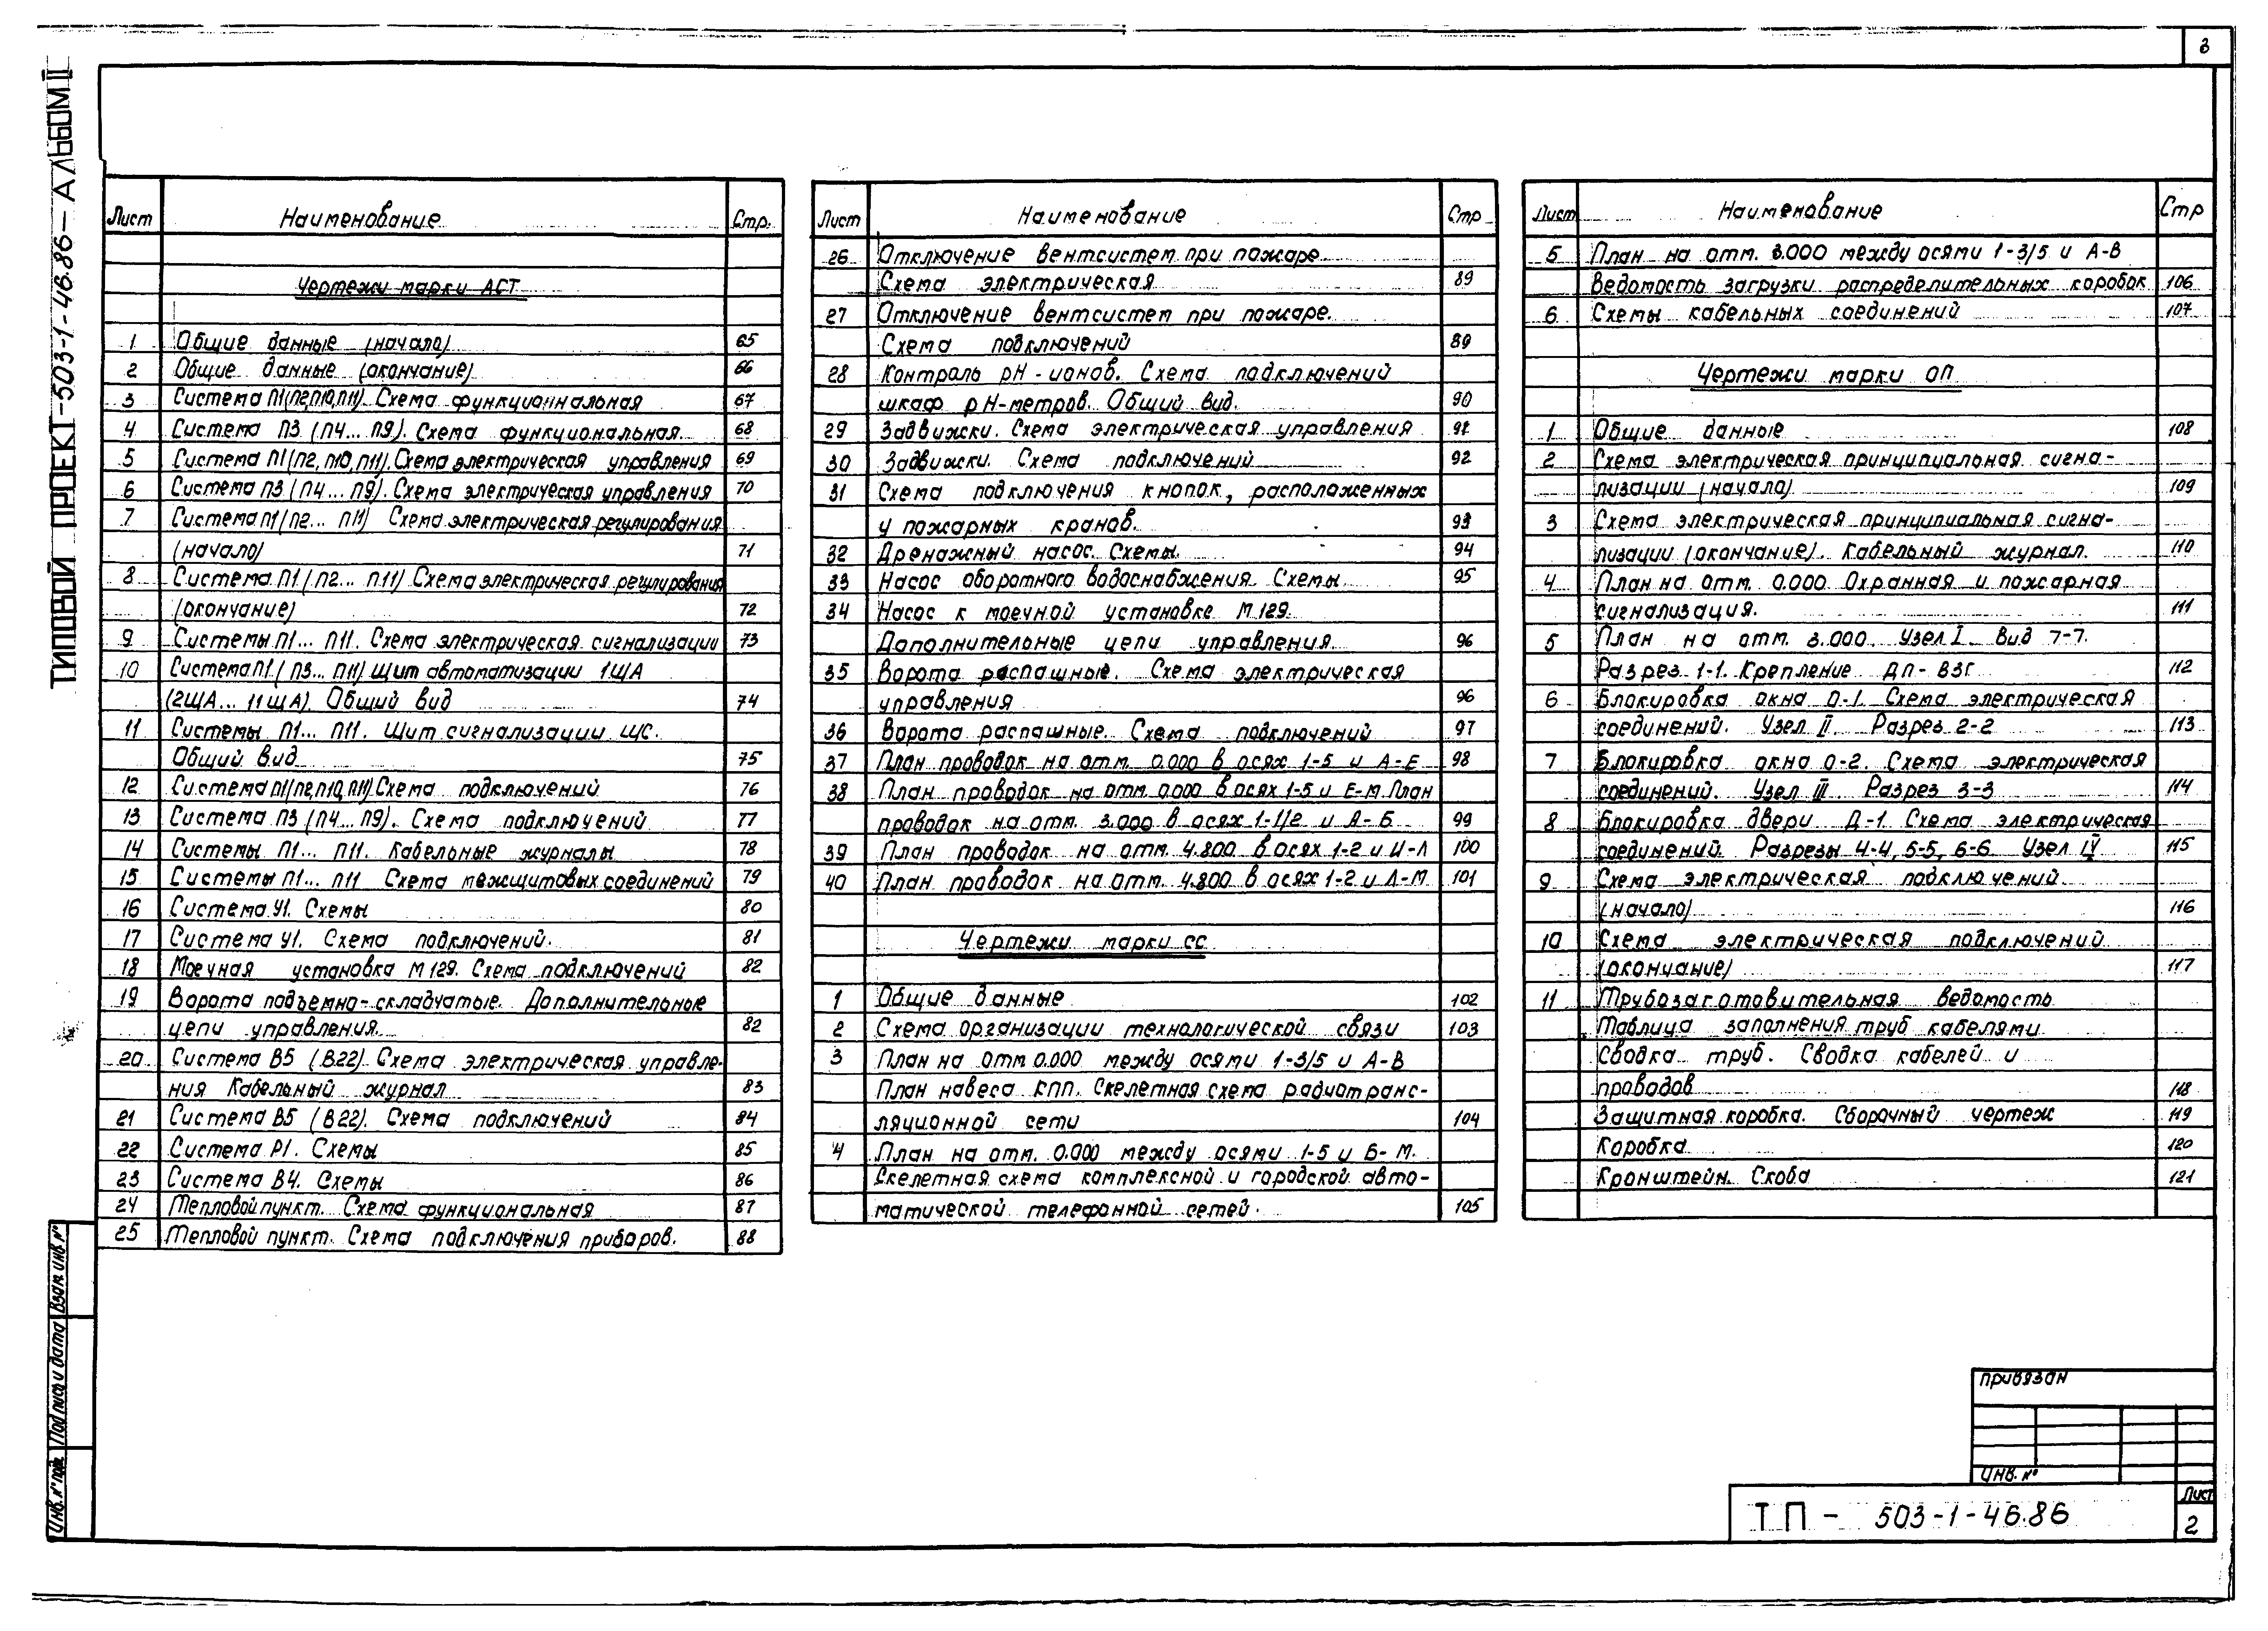 3
ТИПОВОЙ ПРОЕКТ-503-1-46.86-АЛЬБОМ II
Лист Наименование Стр.
Чертежи марки АСТ
1 Общие данные (начало) 65
2 Общие данные (окончание) 66
3 Система П1(П2,П10,П11). Схема функциональная 67
4 Система П3 (П4... П9). Схема функциональная. 68
5 Система П1(П2, П10, П11). Схема электрическая управления 69
6 Система П3 (П4... П9). Схема электрическая управления 70
7 Система П1(П2... П11) Схема электрическая регулирования
(начало) 71
8 Система П1 (П2... П11) Схема электрическая регулирования
(окончание) 72
9 Системы П1... П11. Схема электрическая сигнализации 73
10 Система П1 (П3... П11) Щит автоматизации 1ЩА
(2ЩА... 11ЩА). Общий вид 74
11 Системы П1... П11. Щит сигнализации ЩС.
Общий вид 75
12 Система П1(П2,П10,П11) Схема подключений 76
13 Система П3 (П4...П9). Схема подключений 77
14 Системы П1... П11. Кабельные журналы 78
15 Системы П1... П11 Схема межщитовых соединений 79
16 Система У1. Схемы 80
17 Система У1. Схема подключений. 81
18 Моечная установка М129. Схема подключений 82
19 Ворота подъемно-складчатые. Дополнительные
цепи управления. 82
20 Система В5 (В22). Схема электрическая управле-
ния Кабельный журнал 83
21 Система В5 (В22). Схема подключений 84
22 Система Р1. Схемы 85
23 Система В4. Схемы 86
24 Тепловой пункт. Схема функциональная 87
25 Тепловой пункт. Схема подключения приборов. 88
Лист Наименование Стр
26 Отключение вентсистем при пожаре.
Схема электрическая 89
27 Отключение вентсистем при пожаре.
Схема подключений 89
28 Контроль рН-ионов. Схема подключений
шкаф рН-метров. Общий вид. 90
29 Задвижки. Схема электрическая управления 91
30 Задвижки. Схема подключений 92
31 Схема подключения кнопок, расположенных
у пожарных кранов. 93
32 Дренажный насос. Схемы. 94
33 Насос оборотного водоснабжения. Схемы. 95
34 Насос к моечной установке М129.
Дополнительные цепи управления. 96
35 Ворота распашные. Схема электрическая
управления 96
36 Ворота распашные. Схема подключений 97
37 План проводок на отм. 0.000 в осях 1-5 и А-Е 98
38 План проводок на отм 0.000 в осях 1-5 и Е-М. План
проводок на отм. 3.000 в осях 1-1/2 и А-Б 99
39 План проводок на отм. 4.800 в осях 1-2 и И-Л 100
40 План проводок на отм. 4.800 в осях 1-2 и Л-М 101
Чертежи марки СС
1 Общие данные 102
2 Схема организации технологической связи 103
3 План на отм 0.000 между осями 1-3/5 и А-В
План навеса КПП. Скелетная схема радиотранс-
ляционной сети 104
4 План на отм. 0.000 между осями 1-5 и Б-М.
Скелетная схема комплексной и городской авто-
матической телефонной сетей. 105
Лист Наименование Стр
5 План на отм. 3.000 между осями 1-3/5 и А-В
Ведомость загрузки распределительных коробок 106
6 Схемы кабельных соединений 107
Чертежи марки ОП
1 Общие данные 108
2 Схема электрическая принципиальная сигна-
лизации (начало) 109
3 Схема электрическая принципиальная сигна-
лизации (окончание). Кабельный журнал. 110
4 План на отм. 0.000 Охранная и пожарная
сигнализация. 111
5 План на отм. 3.000. Узел I. Вид 7-7.
Разрез 1-1. Крепление ДП-ВЗГ 112
6 Блокировка окна О-1. Схема электрическая
соединений. Узел II. Разрез 2-2 113
7 Блокировка окна О-2. Схема электрическая
соединений. Узел III. Разрез 3-3 114
8 Блокировка двери Д-1. Схема электрическая
соединений. Разрезы 4-4, 5-5, 6-6. Узел IV 115
9 Схема электрическая подключений
(начало) 116
10 Схема электрическая подключений
(окончание) 117
11 Трубозаготовительная ведомость
Таблица заполнения труб кабелями
Сводка труб. Сводка кабелей и
проводов 118
Защитная коробка. Сборочный чертеж 119
Коробка 120
Кронштейн. Скоба 121
Инв. № подл. Подпись и дата Взам. инв. №
Привязан
Инв. №
ТП - 503-1-46.86
Лист
2